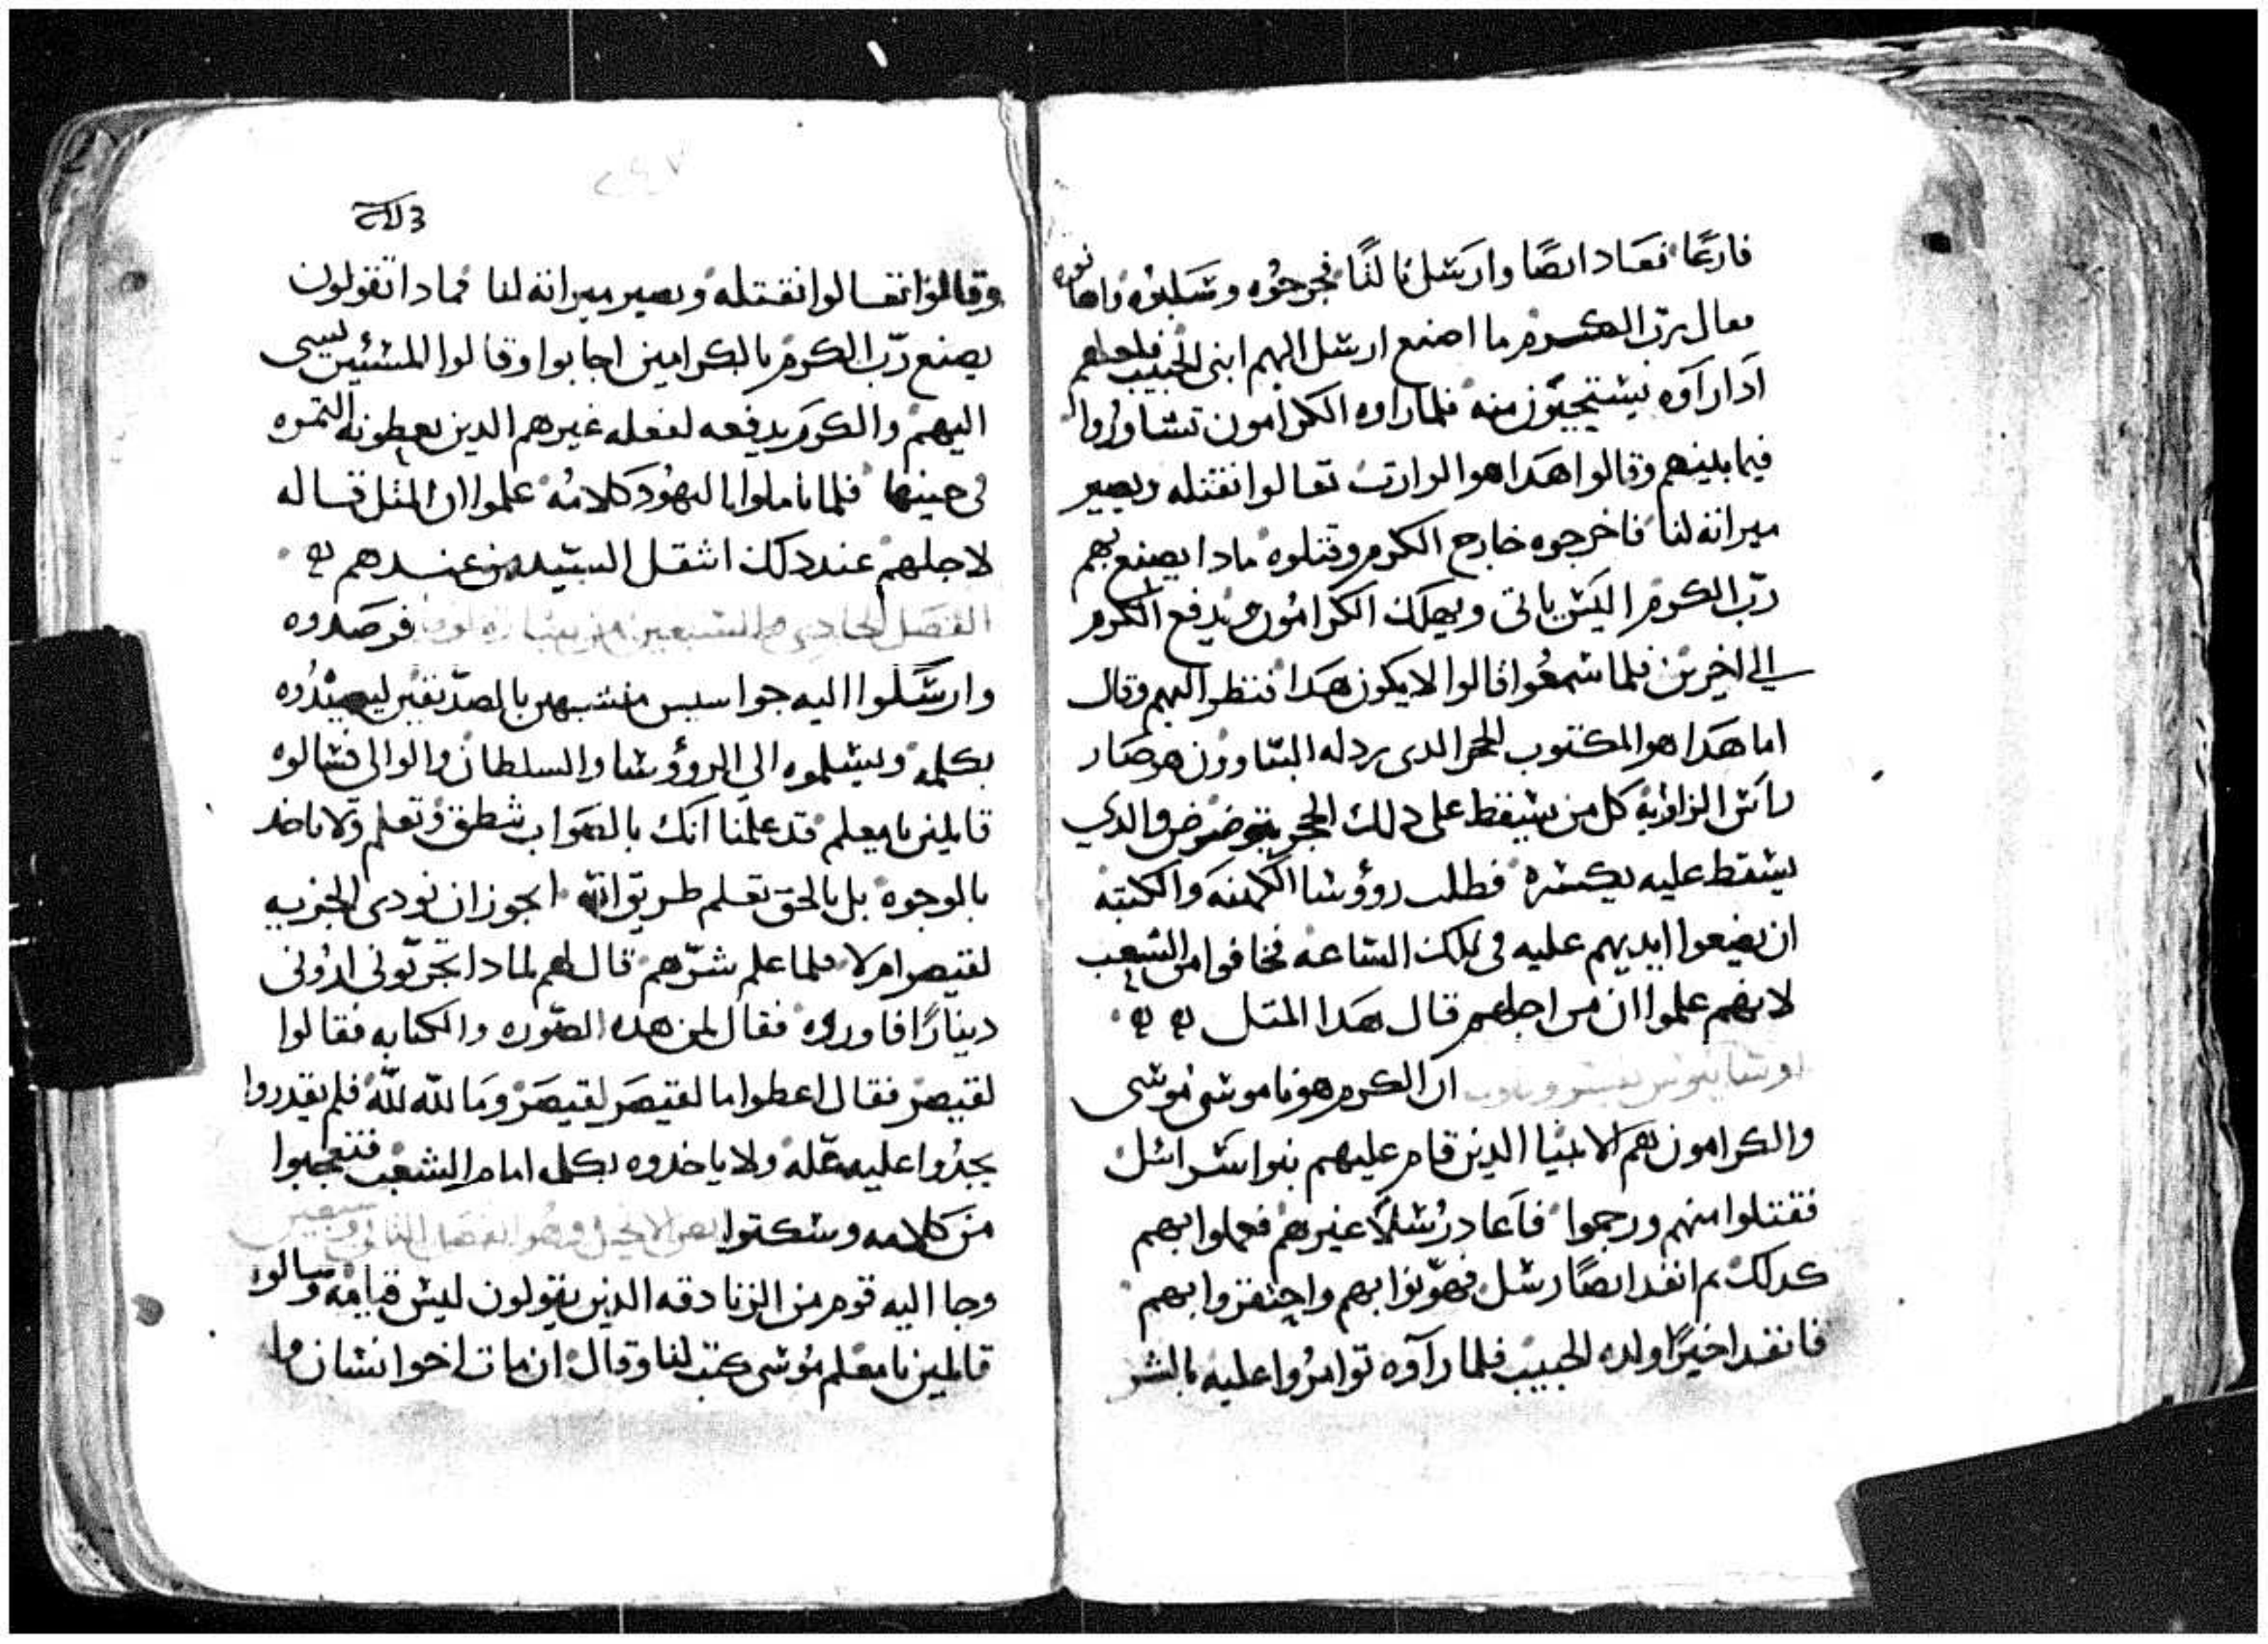 فارغًا فعاد ايضًا وارسل ثالثًا فجرحوه وسلبوه واهانوه
فقال رب الكرم ما اصنع ارسل اليهم ابنى الحبيب فلعلهم
اذا راوه يستحيون منه فلما راوه الكرامون تشاوروا
فيما بينهم وقالوا هدا هو الوارت تعالوا نقتله ويصير
ميراته لنا فاخرجوه خارج الكرم وقتلوه مادا يصنع بهم
رب الكرم اليس ياتى ويهلك الكرامون ويدفع الكرم
الى اخرين فلما سمعوا قالوا لا يكون هدا فنظر اليهم وقال
اما هدا هو المكتوب الحجر الدى ردله البناوون هو صار
راس الزاويه كل من يسقط على دلك الحجر يترضرض والدي
يسقط عليه يكسره فطلب روؤسا الكهنه والكتبه
ان يضعوا ايديهم عليه فى تلك الساعه فخافوا من الشعب
لانهم علموا ان من اجلهم قال هدا المتل
ان الكرم هو ناموس موسى
والكرامون هم الانبيا الدين قام عليهم بنوا اسرائل
فقتلوا منهم ورجموا فاعاد رسلًا غيرهم فعملوا بهم
كدلك تم انفد ايضًا رسل فهونوا بهم واحتقروا بهم
فانفد اخيرًا ولده الحبيب فلما راوه توامروا عليه بالشر
وقالوا تعالوا نقتله ويصير ميراته لنا فمادا تقولون
يصنع رب الكرم بالكرامين اجابوا وقالوا المسيئين يسى
اليهم والكرم يدفعه لفعله غيرهم الدين يعطونه التمره
فى حينها فلما تاملوا اليهود كلامه علموا ان المتل قاله
لاجلهم عند دلك انتقل السيد من عندهم
الفصل الحادي والسبعين من بشاره لوقا فرصدوه
وارسلوا اليه جواسيس متشبهين بالصديقين ليصيدوه
بكلمه ويسلموه الى الروؤسا والسلطان والوالى فسالوه
قايلين يا معلم قد علمنا انك بالصواب تنطق وتعلم ولا تاخد
بالوجوه بل بالحق تعلم طريق الله ايجوز ان نودى الجزيه
لقيصر ام لا فلما علم شرهم قال لهم لمادا تجربونى ارونى
دينارًا فاوروه فقال لمن هده الصوره والكتابه فقالوا
لقيصر فقال اعطوا ما لقيصر لقيصر وما لله لله فلم يقدروا
يجدوا عليه عله ولا ياخدوه بكلمه امام الشعب فتعجبوا
من كلامه وسكتوا نص الانجيل وهو الفصل التانى وسبعين
وجا اليه قوم من الزنادقه الدين يقولون ليس قيامه وسالوه
قايلين يا معلم موسى كتب لنا وقال ان مات اخو انسان وله